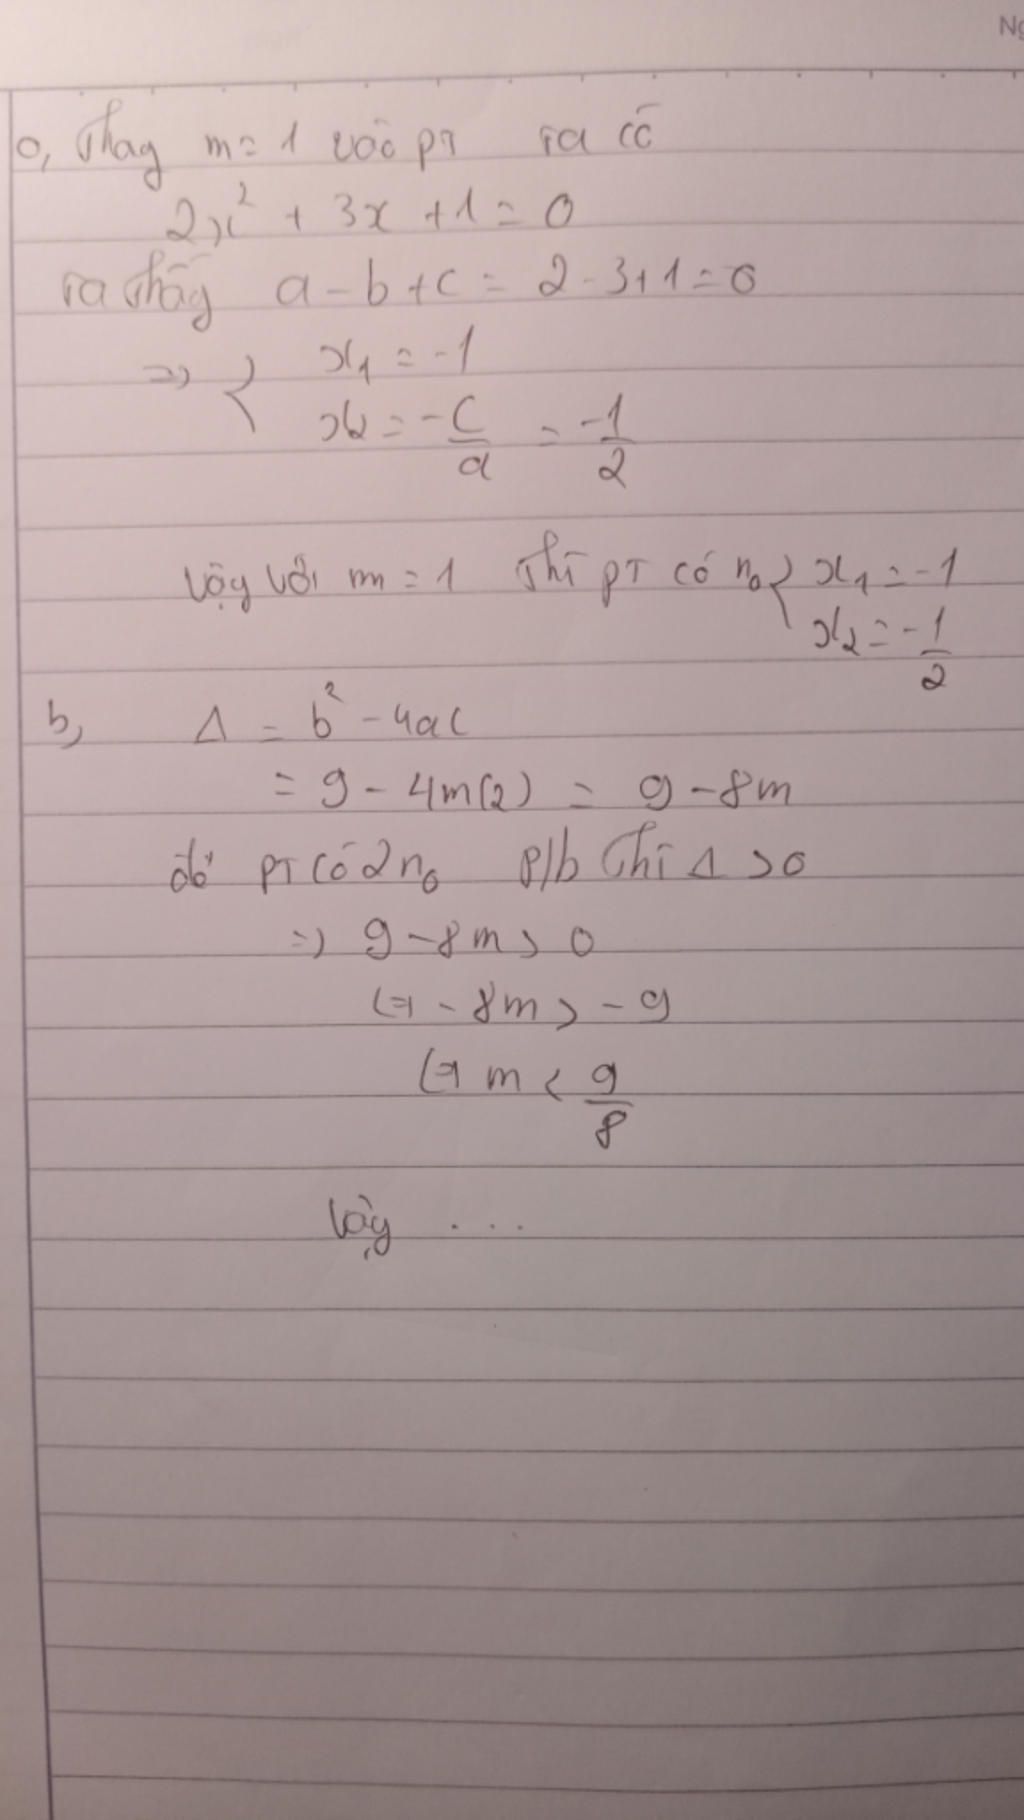 Ng
a, Thay m = 1 vào pT ta có
2x² + 3x + 1 = 0
ta thấy a - b + c = 2 - 3 + 1 = 0
=> { x₁ = -1
x₂ = -c/a = -1/2
Vậy với m = 1 thì PT có n₀ { x₁ = -1
x₂ = -1/2
b, Δ = b² - 4ac
= 9 - 4m(2) = 9 - 8m
để PT có 2n₀ p/b thì Δ > 0
=> 9 - 8m > 0
<=> - 8m > - 9
<=> m < 9/8
Vậy ...